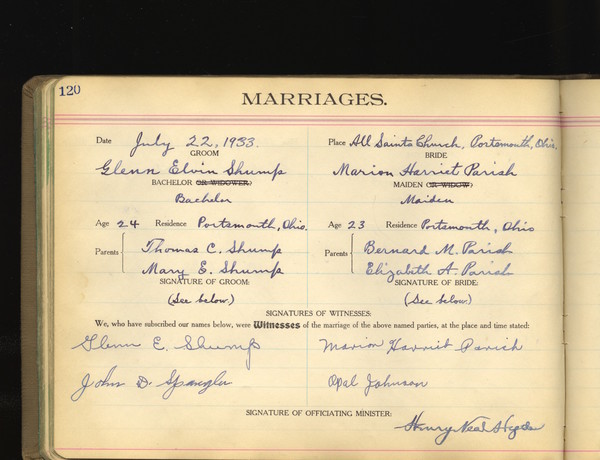 120
MARRIAGES.
Date July 22, 1933. Place All Saints Church, Portsmouth, Ohio.
GROOM BRIDE
Glenn Elvin Shump Marion Harriet Parish
BACHELOR (OR WIDOWER) MAIDEN (OR WIDOW)
Bachelor Maiden
Age 24 Residence Portsmouth, Ohio. Age 23 Residence Portsmouth, Ohio
Parents Thomas C. Shump Parents Bernard M. Parish
Mary E. Shump Elizabeth A. Parish
SIGNATURE OF GROOM: SIGNATURE OF BRIDE:
(See below.) (See below.)
SIGNATURES OF WITNESSES:
We, who have subscribed our names below, were Witnesses of the marriage of the above named parties, at the place and time stated:
Glenn E. Shump Marion Harriet Parish
John D. Spangler Opal Johnson
SIGNATURE OF OFFICIATING MINISTER:
Henry Neal